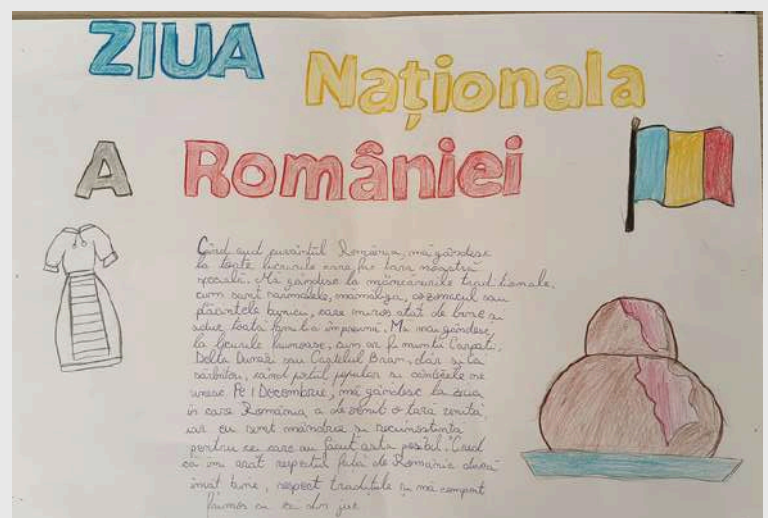 ZIUA
Naționala
A României
Când aud cuvântul România, mă gândesc
la toate lucrurile care fac țara noastră
specială. Mă gândesc la mâncărurile tradiționale,
cum sunt sarmalele, mămăliga, cozonacul sau
plăcintele bunicii, care miros atât de bine și
aduc toată familia împreună. Mă mai gândesc
la locurile frumoase, cum ar fi munții Carpați,
Delta Dunării sau Castelul Bran, dar și la
sărbători, când portul popular și cântecele ne
unesc. Pe 1 Decembrie, mă gândesc la ziua
în care România a devenit o țară unită
iar eu simt mândrie și recunoștință
pentru cei care au făcut asta posibil. Cred
că îmi arăt respectul față de România dacă
învăț bine, respect tradițiile și mă comport
frumos cu cei din jur.